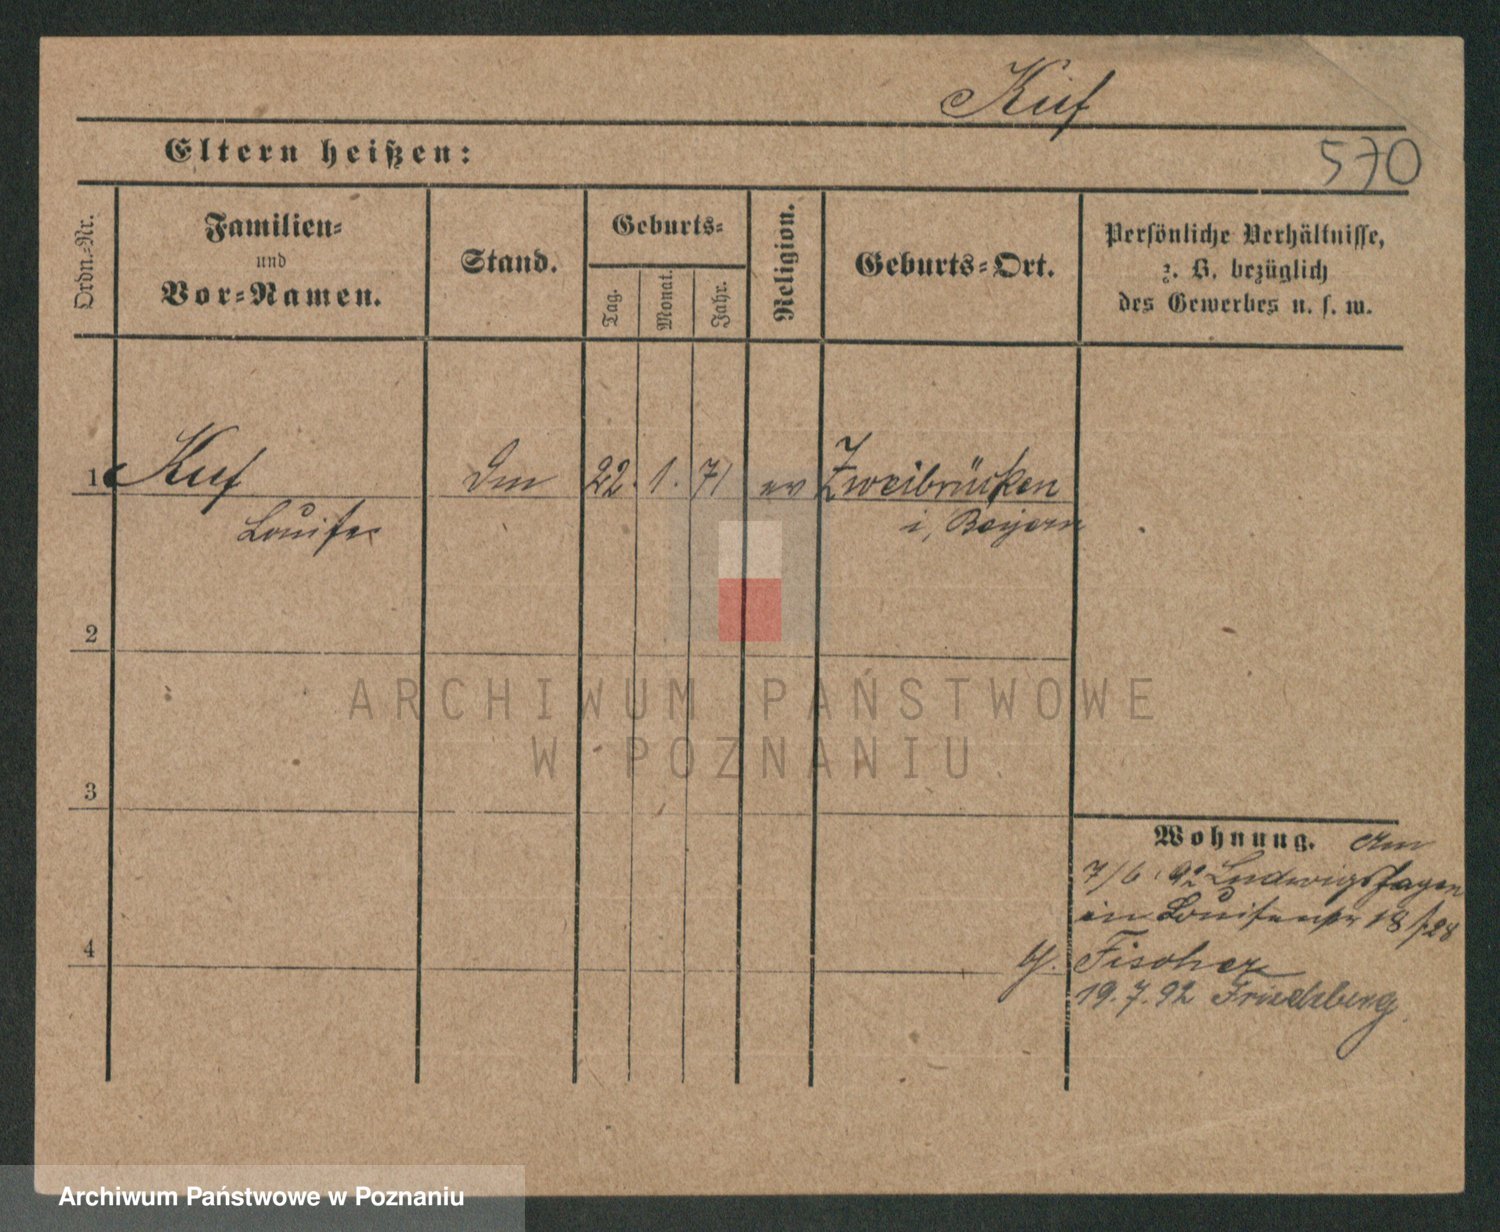 Kuf
570
Eltern heißen:
Ordn.-Nr.
Familien-
und
Vor-Namen.
Stand.
Geburts-
Tag.
Monat.
Jahr.
Religion.
Geburts-Ort.
Persönliche Verhältnisse,
z. B. bezüglich
des Gewerbes u. s. w.
1 Kuf 22. 1. 71 ev Zweibrücken
Louise i, Bayern
2
ARCHIWUM PAŃSTWOWE
W POZNANIU
3
Wohnung.
7/6. 92 Ludwigshagen
in Louisenstr 18
4
Fischer
19.7.92 Friedeberg
Archiwum Państwowe w Poznaniu